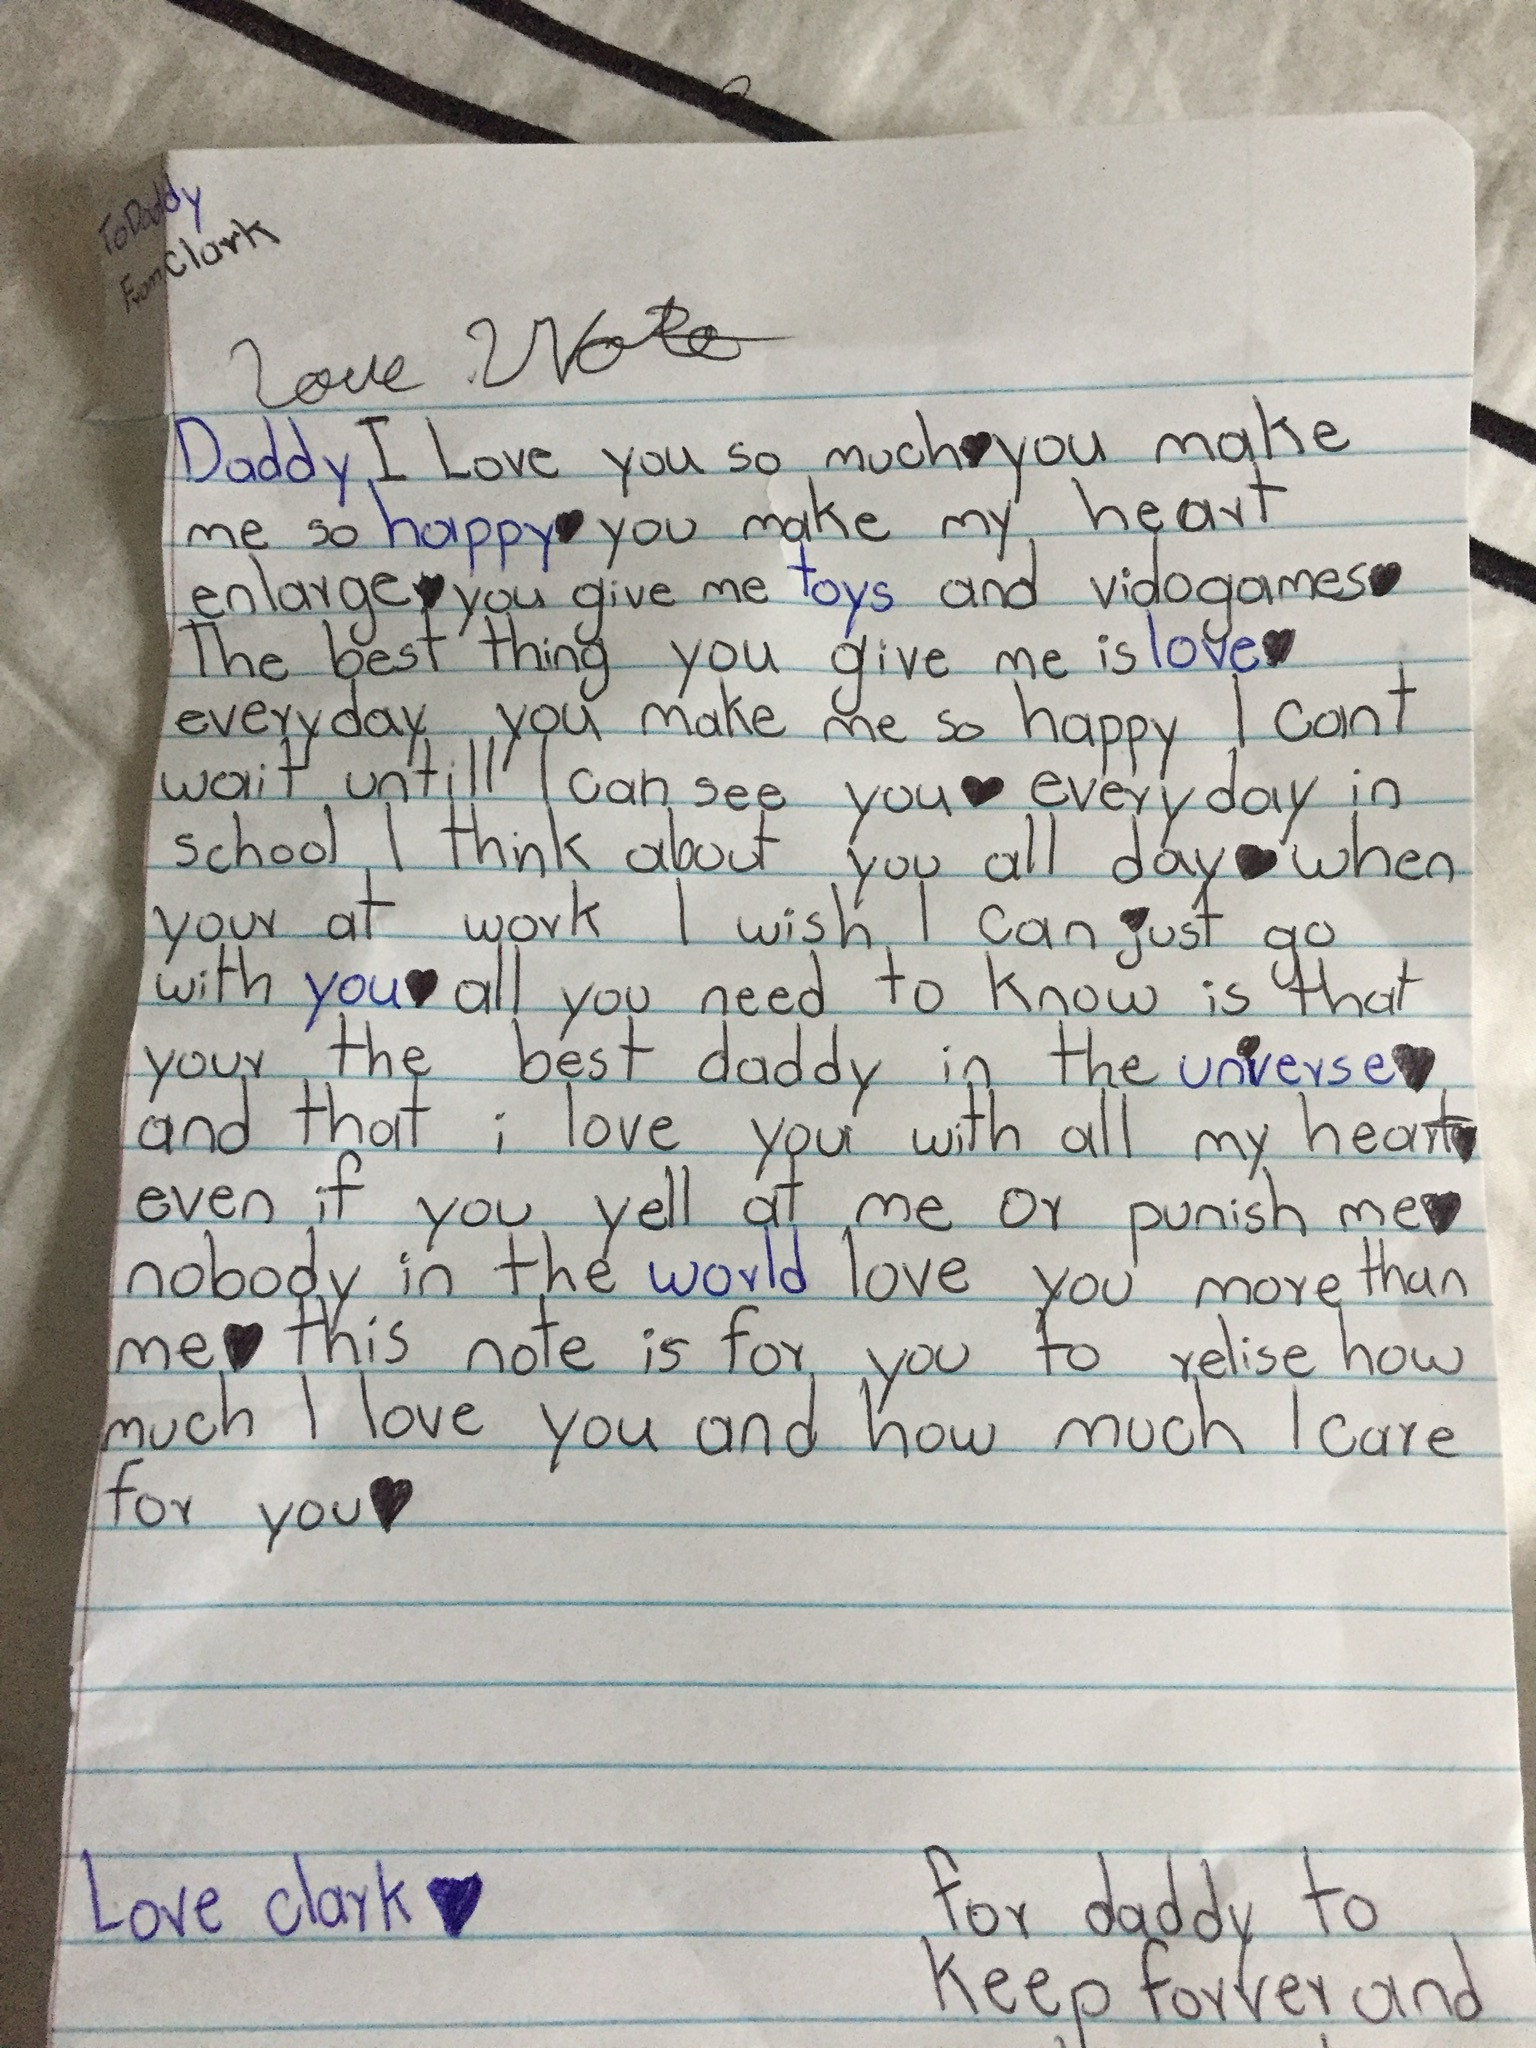 To Daddy
From Clark
Love Note
Daddy, I Love you so much♥you make
me so happy♥ you make my heart
enlarge♥you give me toys and vidogames♥
The best thing you give me is love♥
everyday you make me so happy I cant
wait untill I can see you♥ everyday in
school I think about you all day♥when
your at work I wish I can just go
with you♥ all you need to know is that
your the best daddy in the universe♥
and that i love you with all my heart♥
even if you yell at me or punish me♥
nobody in the world love you more than
me♥ this note is for you to relise how
much I love you and how much I care
for you♥
Love clark♥
for daddy to
keep forver and